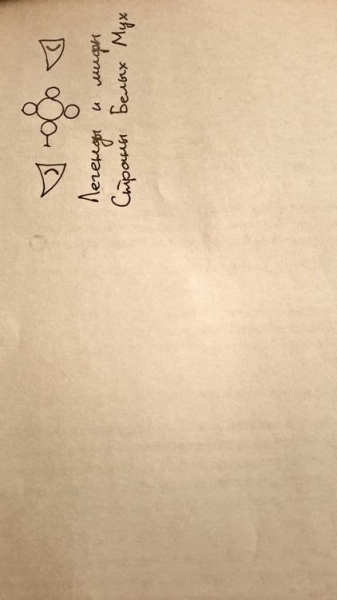 Легенды и мифы
Страны Белых Мух